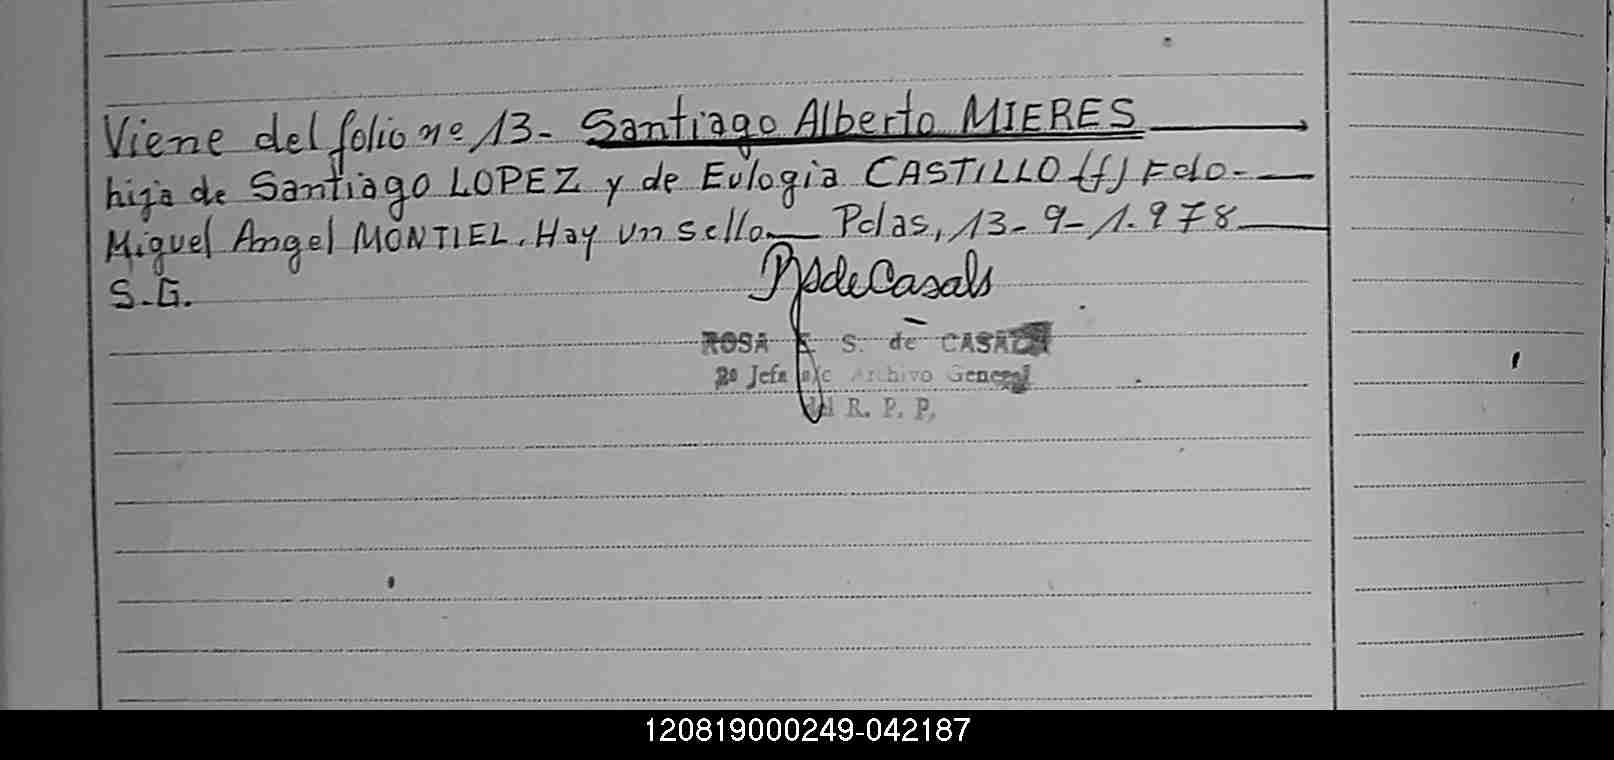 Viene del folio nº 13- Santiago Alberto MIERES
hija de Santiago LOPEZ y de Eulogia CASTILLO (f) Fdo-
Miguel Angel MONTIEL. Hay un sello Pdas, 13-9-1.978
S.G.
RSdeCasals
ROSA E. S. de CASALS
2º Jefa a/c Archivo General
del R. P. P.
120819000249-042187